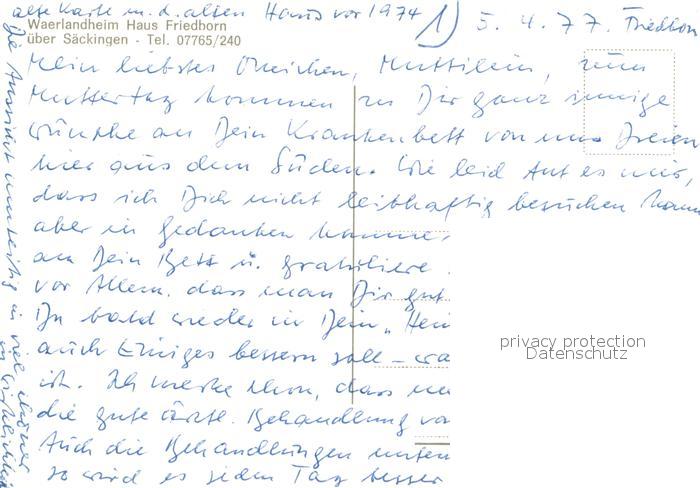 alte Karte m. d. alten Haus vor 1974 1) 5. 4. 77. Friedborn
Waerlandheim Haus Friedborn
über Säckingen - Tel. 07765/240
Mein liebstes Omichen, Muttilein, zum
Muttertag kommen zu Dir ganz innige
Wünsche an Dein Krankenbett von uns Dreien
hier aus dem Süden. Wie leid tut es mir,
dass ich Dich nicht leibhaftig besuchen kann
aber in Gedanken komme
an Dein Bett u. gratuliere
vor Allem, dass man Dir gut
Du bald wieder in Dein "Hei
auch Einiges bessern soll -
ist. Ich merke schon, dass
die gute ärztl. Behandlung
Auch die Behandlungen
so wird es jeden Tag besser
privacy protection
Datenschutz
Die Ansicht in viel schöner
in Wirklichkeit